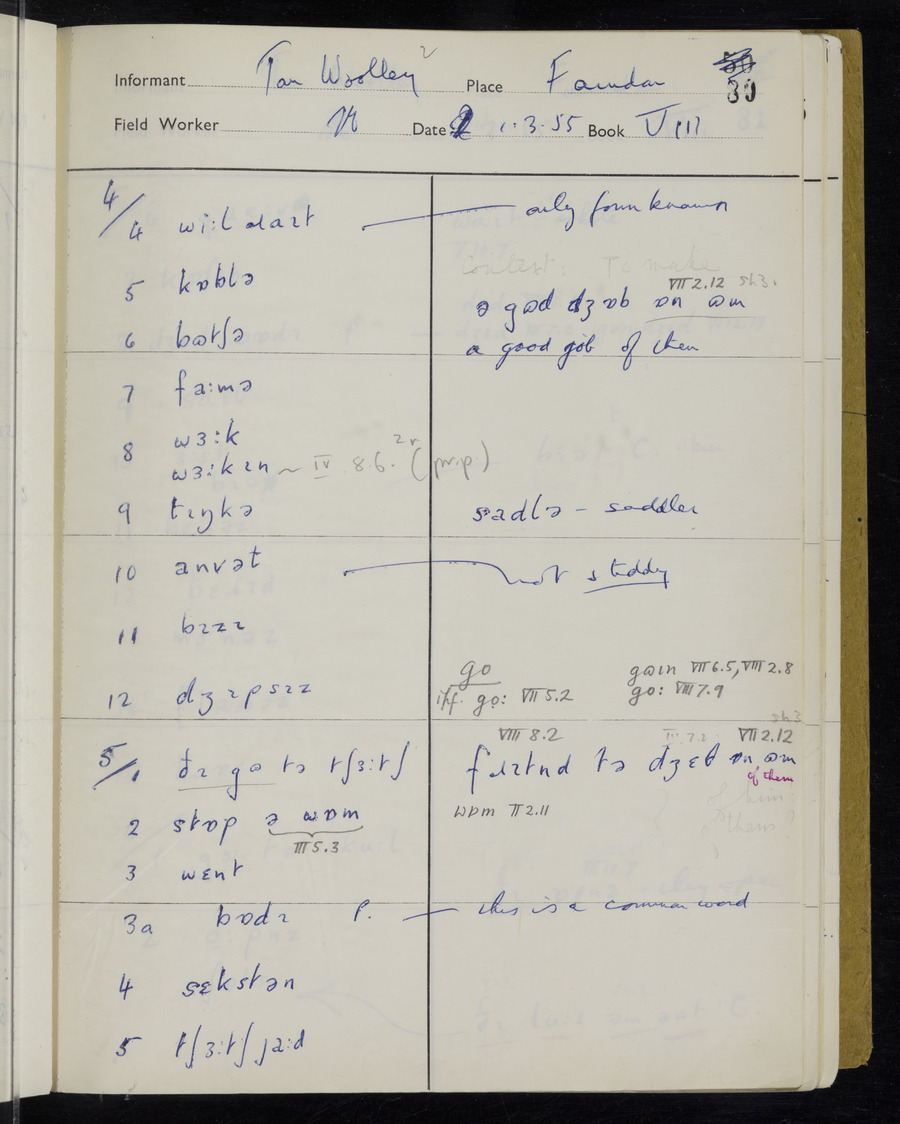 Informant Tom Woolley 2 Place Farndon 30
Field Worker Date 1.3.55 Book VIII
4/4 wiːl only form known
5 kɒblə
Context: To make
VII 2.12 sh3.
ə gɷd dʒɒb ɒn ɷm
6 bɷtʃə a good job of them
7 faːmə
8 wɜːk
wɜːkɪn ~ IV 8.6. 2r (pr.p.)
9 tɪŋkə sadlə – saddler
10 anvət not studdy
11 bɪzɪ
go gɷɪn VII 6.5, VIII 2.8
12 dʒɪpsɪz go: VII 5.2 go: VIII 7.9
sh3
VIII 8.2 III 7.2 VII 2.12
5/1 ðɪ gɷ tə tʃɜːtʃ tə dʒɛt ɒn ɷm
of them
2 stɒp ə wɒm wɒm II 2.11
of him:
them?
III 5.3
3 wɛnt
3a bɒdɪ P. – this is a common word
4 sɛkstən
5 tʃɜːtʃ jaːd